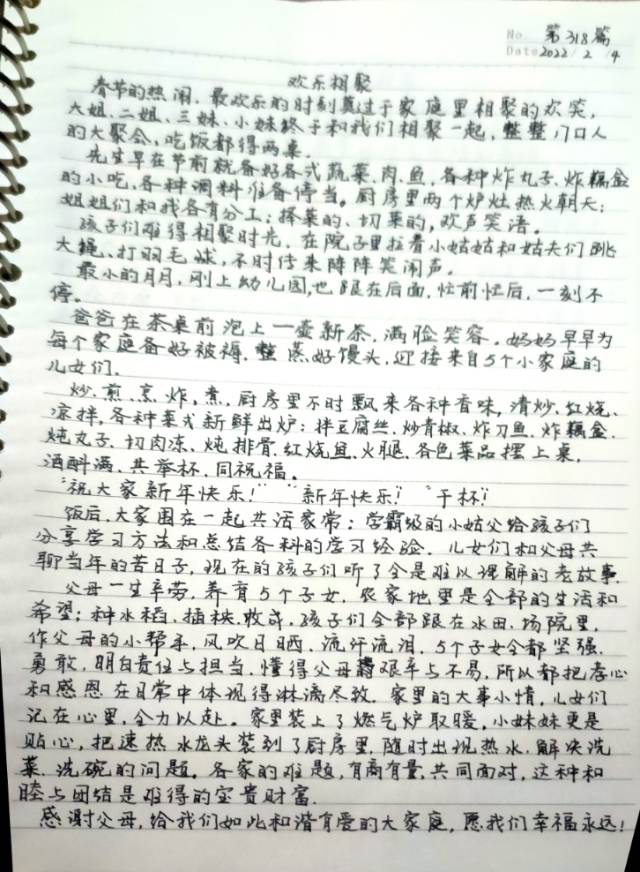 No: 第318篇
Date 2022 / 2 / 4
欢乐相聚
春节的热闹,最欢乐的时刻莫过于家庭里相聚的欢笑,
大姐、二姐、三妹、小妹终于和我们相聚一起,整整门口人
的大聚会,吃饭都得两桌.
先生早在节前就备好各式蔬菜、肉、鱼,各种炸丸子、炸藕盒
的小吃,各种调料准备停当。厨房里两个炉灶热火朝天;
姐姐们和我各有分工;择菜的、切菜的,欢声笑语。
孩子们难得相聚时光,在院子里拉着小姑姑和姑夫们跳
大绳、打羽毛球,不时传来阵阵笑闹声。
最小的月月,刚上幼儿园,也跟在后面,忙前忙后,一刻不
停。
爸爸在茶桌前泡上一壶新茶,满脸笑容。妈妈早早为
每个家庭备好被褥,蒸好馒头,迎接来自5个小家庭的
儿女们.
炒、煎、烹、炸、煮,厨房里不时飘来各种香味,清炒、红烧、
凉拌,各种菜式新鲜出炉:拌豆腐丝、炒青椒、炸刀鱼、炸藕盒、
炖丸子、切肉冻、炖排骨、红烧鱼、火腿、各色菜品摆上桌,
酒斟满、共举杯、同祝福。
“祝大家新年快乐!”“新年快乐!”“干杯!”
饭后,大家围在一起共话家常:学霸级的小姑父给孩子们
分享学习方法和总结各科的学习经验.儿女们和父母共
聊当年的苦日子,现在的孩子们听了全是难以理解的老故事.
父母一生辛劳,养育5个子女,农家地里是全部的生活和
希望;种水稻、插秧、收成,孩子们全部跟在水田、场院里,
作父母的小帮手,风吹日晒、流汗流泪.5个子女全都坚强、
勇敢,明白责任与担当,懂得父母艰辛与不易,所以都把孝心
和感恩在日常中体现得淋漓尽致.家里的大事小情,儿女们
记在心里,全力以赴。家里装上了燃气炉取暖,小妹妹更是
贴心,把速热水龙头装到了厨房里,随时出现热水,解决洗
菜、洗碗的问题。各家的难题,有商有量,共同面对,这种和
睦与团结是难得的宝贵财富.
感谢父母,给我们如此和谐有爱的大家庭,愿我们幸福永远!